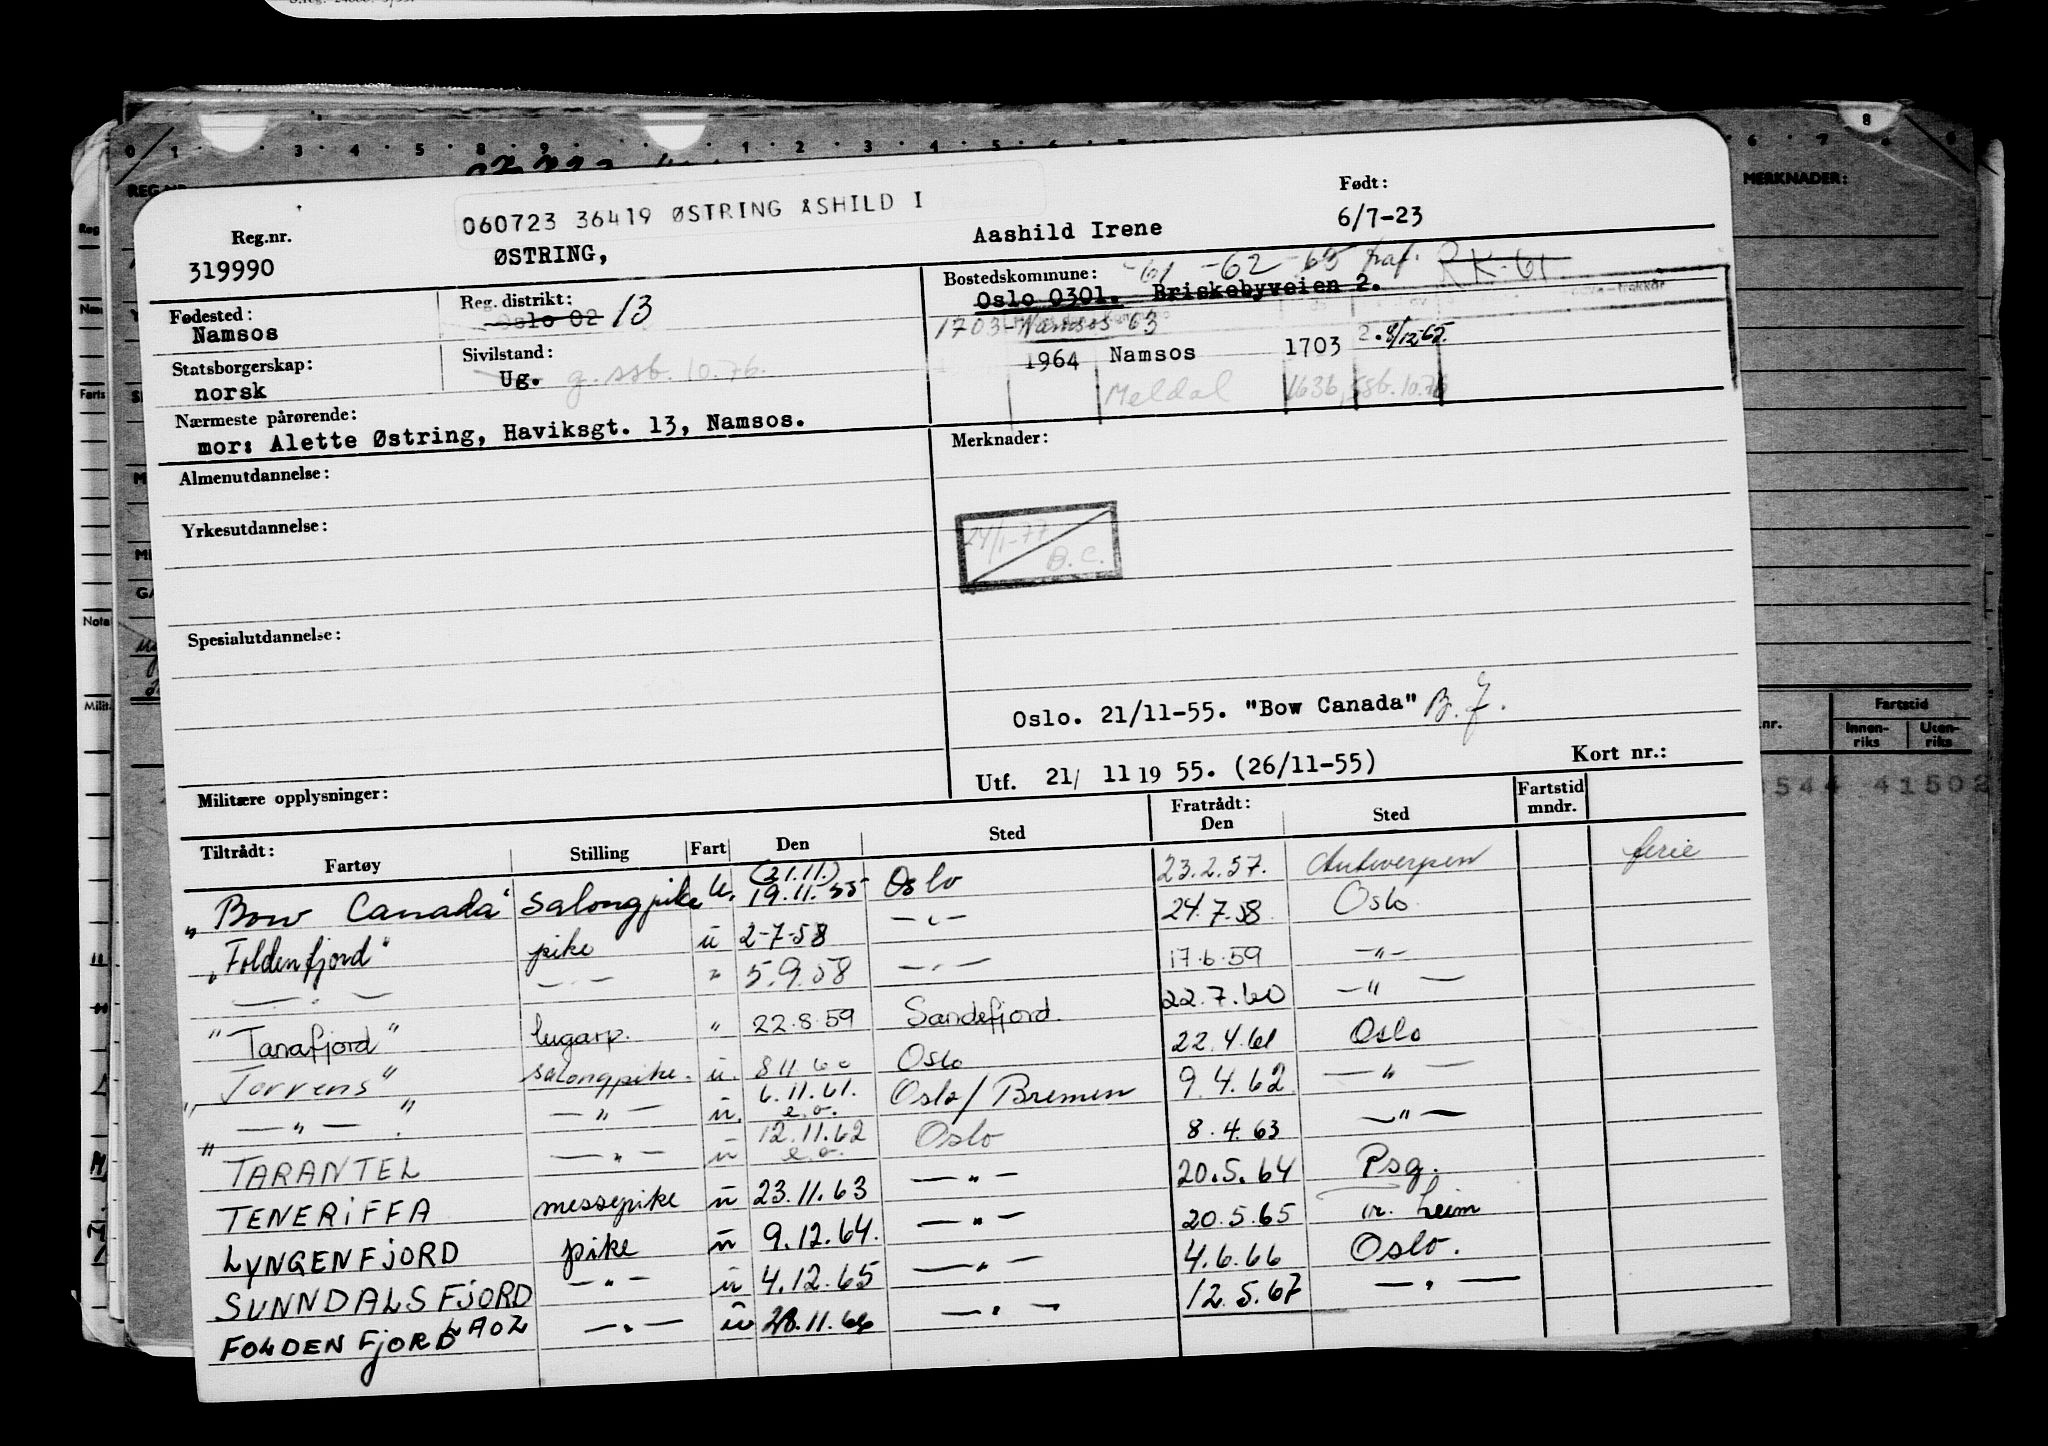 060723 36419 ØSTRING ÅSHILD I
Reg.nr.
319990
ØSTRING,
Aashild Irene
Født:
6/7-23
Fødested:
Namsos
Reg. distrikt:
Oslo 02 13
Bostedskommune: -61 -62 -65 RK-61
Oslo 0301. Briskebyveien 2.
1703 Namsos 63
Statsborgerskap:
norsk
Sivilstand:
Ug. g. ssb. 10.76.
1964 Namsos 1703
Meldal 1636, ssb. 10.76
Nærmeste pårørende:
mor: Alette Østring, Haviksgt. 13, Namsos.
Almenutdannelse:
Merknader:
Yrkesutdannelse:
24/1-77
Spesialutdannelse:
Oslo. 21/11-55. "Bow Canada"
Utf. 21/ 11 19 55. (26/11-55)
Kort nr.:
Militære opplysninger:
Tiltrådt: Fartøy Stilling Fart Den Sted Fratrådt: Den Sted Fartstid mndr.
"Bow Canada" Salongpike u. (21.11.) 19.11.55 Oslo 23.2.57. Antwerpen ferie
"Foldenfjord" pike u 2-7-58 —"— 24.7.58 Oslo.
—"— —"— " 5.9.58 —"— 17.6.59 —"—
"Tanafjord" lugarp. " 22.8.59 Sandefjord. 22.7.60 —"—
"Torrens" salongpike. u. 8 11 60 Oslo 22.4.61 Oslo
"—"—" —"— u. 6.11.61. e.o. Oslo/Bremen 9.4.62 —"—
TARANTEL —"— u 12.11.62 e.o. Oslo 8.4.63 —"—
TENERIFFA messepike u 23.11.63 —"— 20.5.64 Psg.
LYNGENFJORD pike u 9.12.64. —"— 20.5.65 Tr. heim
SUNNDALSFJORD —"— u 4.12.65 —"— 4.6.66 Oslo.
FOLDENFJORD LAOZ —"— u 28.11.66 —"— 12.5.67 —"—
MERKNADER:
Fartstid
Innenriks
Utenriks